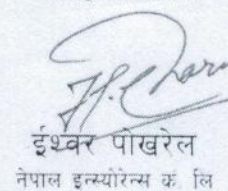 ईश्वर पोखरेल
नेपाल इन्स्योरेन्स कं. लि